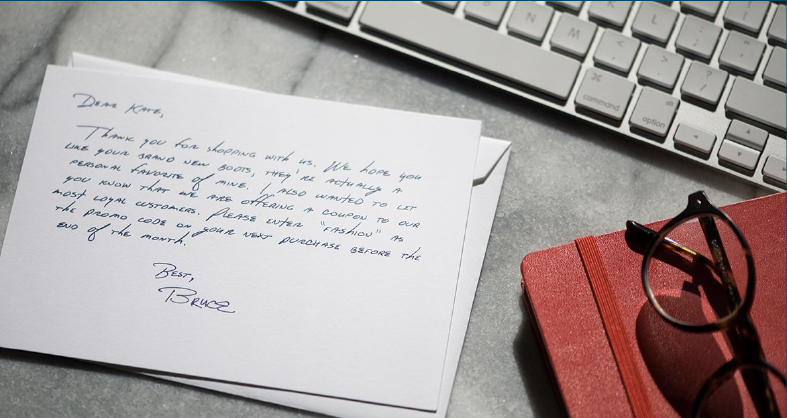 Dear Kate,
Thank you for shopping with us. We hope you
like your brand new boots, they're actually a
personal favorite of mine. I also wanted to let
you know that we are offering a coupon to our
most loyal customers. Please enter "Fashion" as
the promo code on your next purchase before the
end of the month.
Best,
Bruce
N M K L
command option